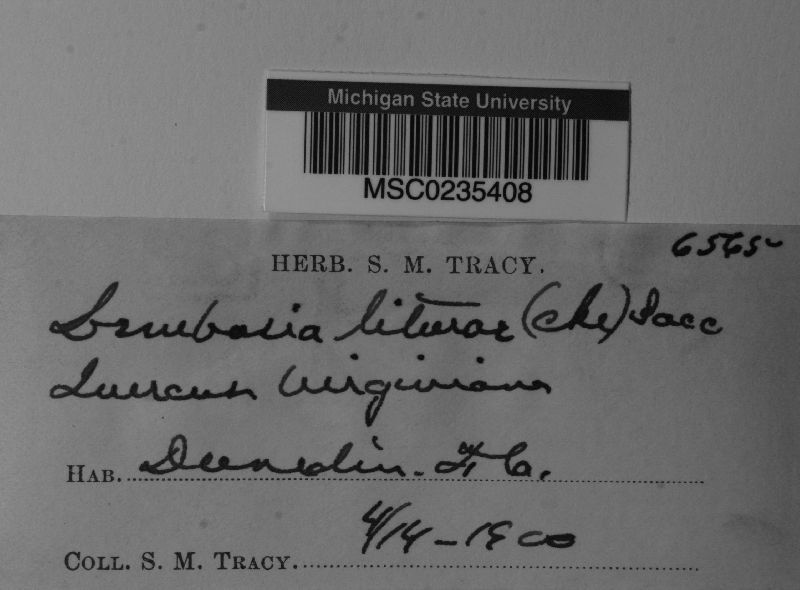 Michigan State University
MSC0235408
6565
HERB. S. M. TRACY.
Lembosia liturae (Cke) Sacc
Quercus virginiana
HAB. Dunedin. Fla.
4/14-1900
COLL. S. M. TRACY.